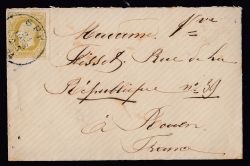 Madame Vve
Rue de la
République no 39
à Rouen
France